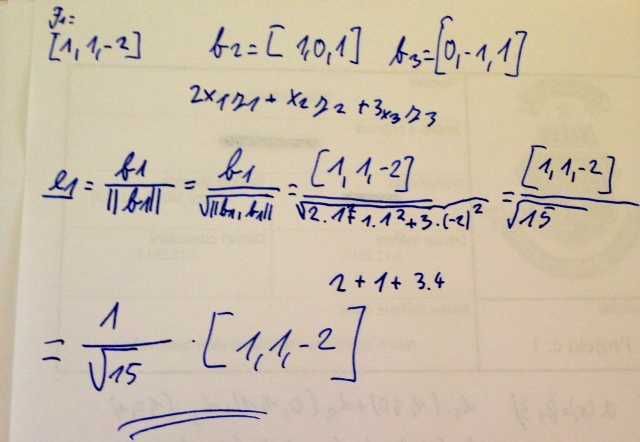 J1=
[1,1,-2] b2=[1,0,1] b3=[0,-1,1]
2x1y1+x2y2+3x3y3
e1 = b1/||b1|| = b1/√||b1,b1|| = [1,1,-2]/√2.1²+1.1²+3.(-2)² = [1,1,-2]/√15
2+1+3.4
= 1/√15 · [1,1,-2]